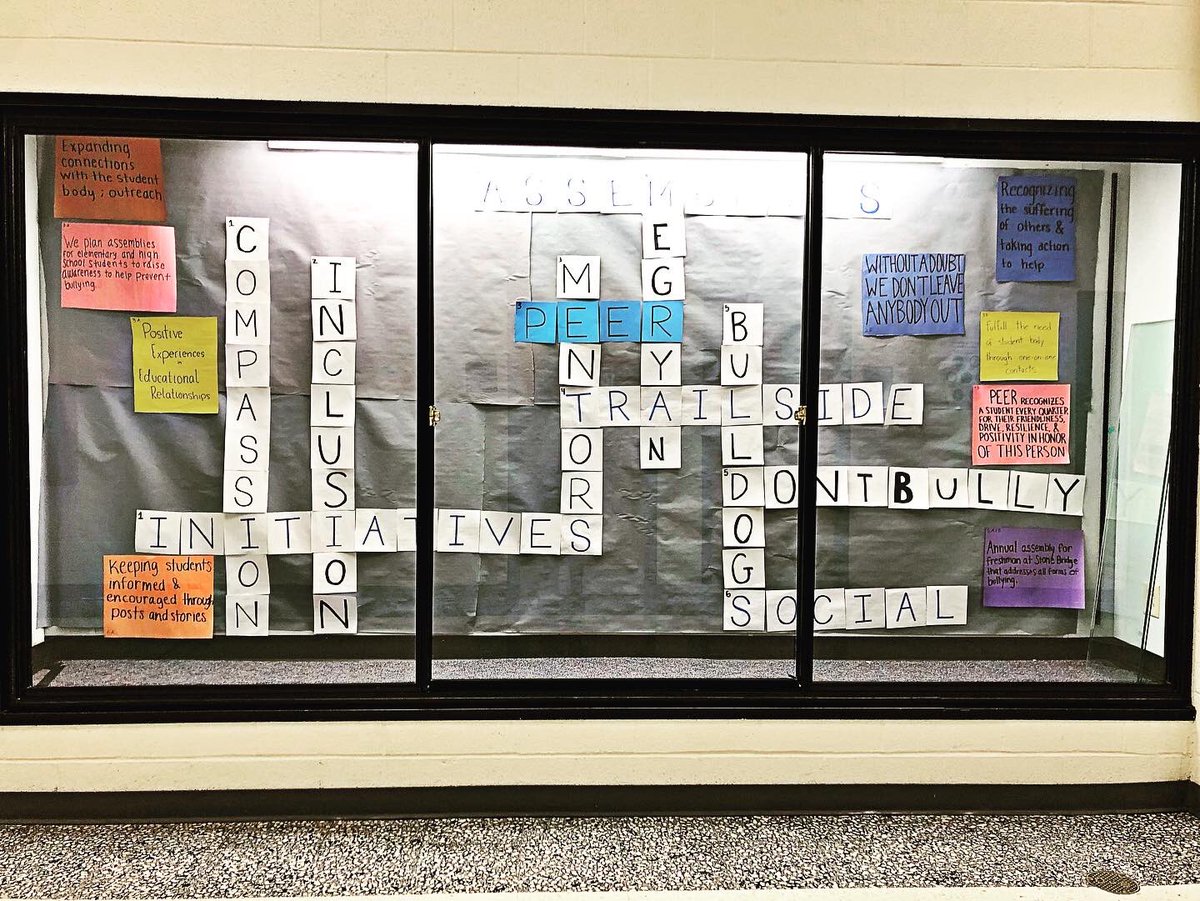 ASSEMBLIES
Expanding
connections
with the student
body; outreach
We plan assemblies
for elementary and high
school students to raise
awareness to help prevent
bullying.
Positive
Experiences
in
Educational
Relationships
COMPASSION
INCLUSION
INITIATIVES
Keeping students
informed &
encouraged through
posts and stories
MENTORS
PEER
MEGRYAN
TRAILSIDE
BULLDOGS
DONTBULLY
SOCIAL
WITHOUT A DOUBT
WE DON'T LEAVE
ANYBODY OUT
Recognizing
the suffering
of others &
taking action
to help
Fulfill the need
of student body
through one-on-one
contacts
PEER RECOGNIZES
A STUDENT EVERY QUARTER
FOR THEIR FRIENDLINESS,
DRIVE, RESILIENCE, &
POSITIVITY IN HONOR
OF THIS PERSON
Annual assembly for
freshman at Stone Bridge
that addresses all forms of
bullying.